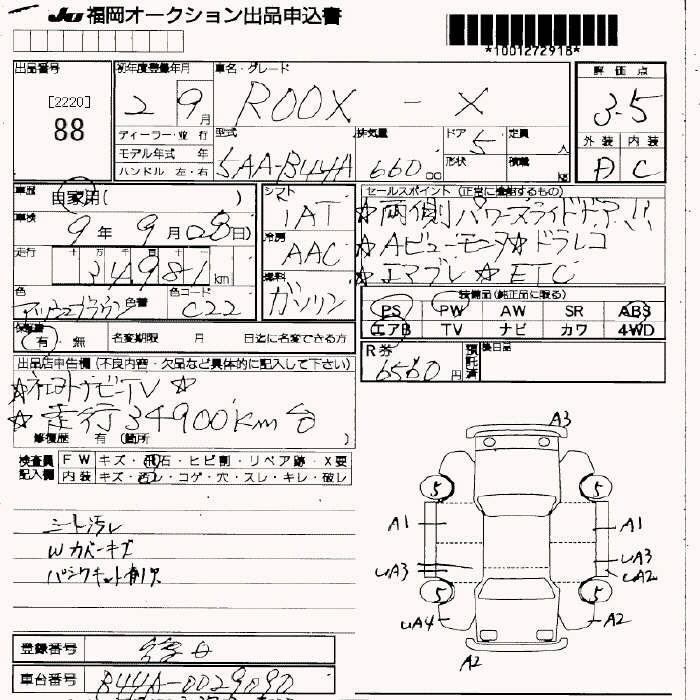 JU 福岡オークション出品申込書
*1001272918*
出品番号 初年度登録年月 車名・グレード 評価点
[2220]
88
2 9月 ROOX - X 3.5
ディーラー・並行 型式 排気量 ドア 定員 人 外装 内装
モデル年式 年 5AA-B44A 660 cc 5 D C
ハンドル 左・右 形状 積載 kg
車歴 自家用( ) シフト セールスポイント(正常に機能するもの)
車検 9年 9月 日) IAT ☆両側パワースライドドア!!
冷房 AAC ☆Aビューモニタ☆ドラレコ
走行 十 万 千 百 十 一 ☆エマブレ☆ETC
34981 km 燃料 ガソリン
色 色替 色コード C22 装備品(純正品に限る)
PS PW AW SR ABS
エアB TV ナビ カワ 4WD
保証書 有・無 名変期限 月 日迄に名変できる方
R券 6560円 預託済 後日品
出品店申告欄(不良内容・欠品など具体的に記入して下さい)
☆社外ナビTV☆
☆走行34900km台
修復歴 有(箇所
検査員 FW キズ・飛石・ヒビ割・リペア跡・X要
記入欄 内装 キズ・汚レ・コゲ・穴・スレ・キレ・破レ
シート汚レ
Wカバーキズ
パンクキット有
A3
5 5
A1 A1
UA3 UA3
UA2
5 5
UA4 A2
A2
登録番号
車台番号 B44A-0029090